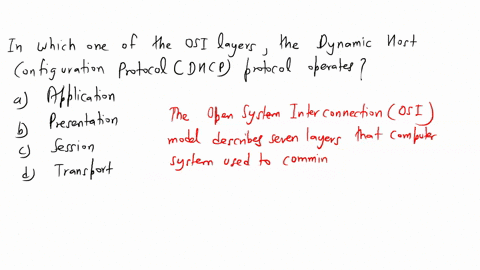 In which one of the OSI layers, the Dynamic Host
Configuration Protocol (DHCP) protocol operates?
a) Application
b) Presentation
c) Session
d) Transport
The Open System Interconnection (OSI)
model describes seven layers that computer
system used to commin